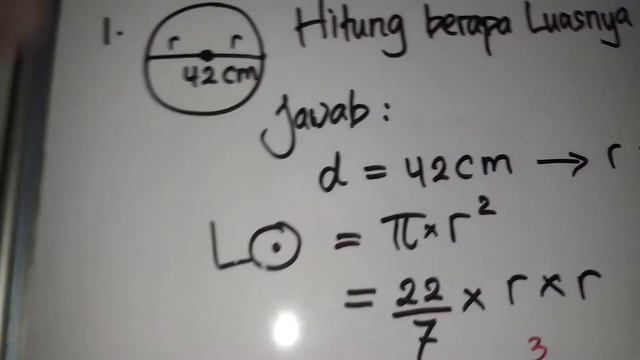 1. r r Hitung berapa Luasnya
42 cm
Jawab :
d = 42 cm → r
L⊙ = π × r²
= 22/7 × r × r
3